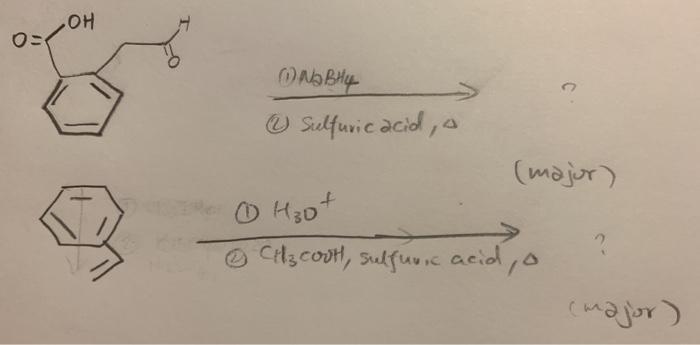 OH
O=
H
O
① NaBH4
② Sulfuric acid, Δ
?
(major)
① H3O+
② CH3COOH, sulfuric acid, Δ
?
(major)